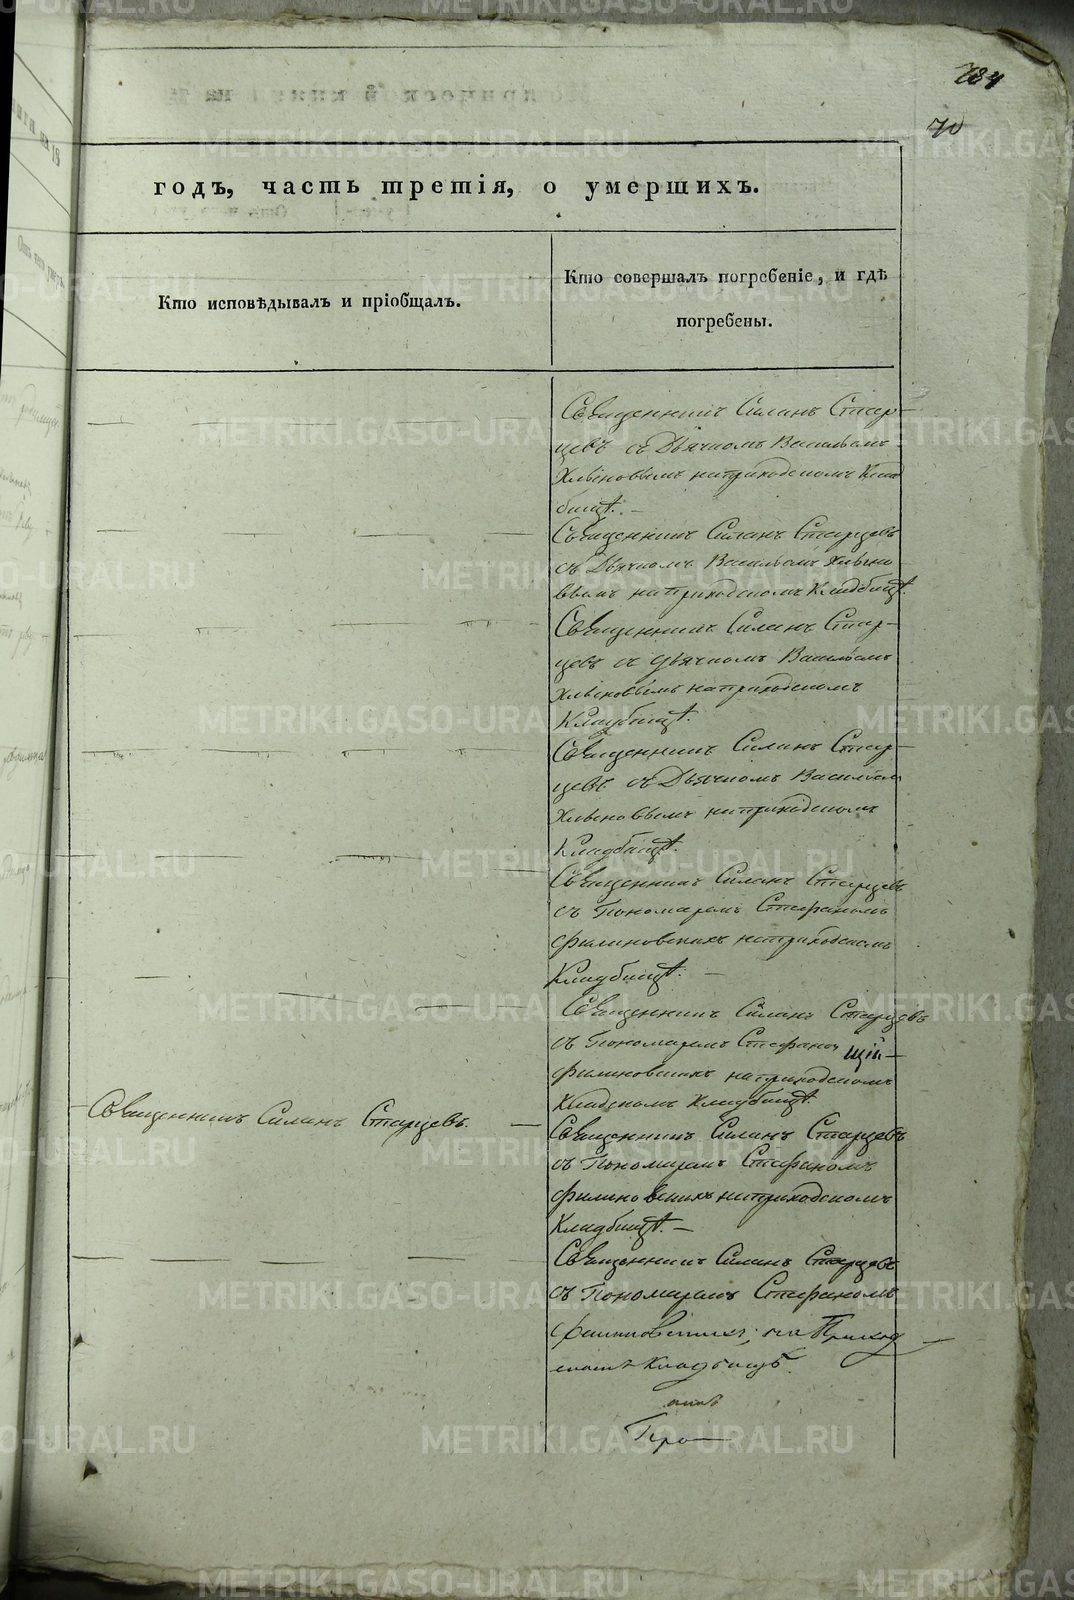 734
70
годъ, часть третія, о умершихъ.
Кто исповѣдывалъ и пріобщалъ.
Кто совершалъ погребеніе, и гдѣ
погребены.
Священникъ Силинъ Стар-
цевъ съ Дьячкомъ Васильемъ
Хлѣновымъ на приходскомъ Клад
бищѣ. –
Священникъ Силинъ Старцевъ
съ Дьячкомъ Васильемъ Хлѣно
вымъ на приходскомъ Кладбищѣ.
Священникъ Силинъ Стар-
цевъ съ Дьячкомъ Васильемъ
Хлѣновымъ на приходскомъ
Кладбищѣ.
Священникъ Силинъ Стар-
цевъ съ Дьячкомъ Васильемъ
Хлѣновымъ на приходскомъ
Кладбищѣ.
Священникъ Силинъ Старцевъ
съ Пономаремъ Стефаномъ
Филиновскихъ на приходскомъ
Кладбищѣ. –
Священникъ Силинъ Старцевъ
съ Пономаремъ Стефаном щій –
Филиновскихъ на приходскомъ
Кладбищѣ.
Священникъ Силинъ Старцевъ. –
Священникъ Силинъ Старцевъ
съ Пономаремъ Стефаномъ
Филиновскихъ на приходскомъ
Кладбищѣ. –
Священникъ Силинъ Старцевъ
съ Пономаремъ Стефаномъ
Филиновскихъ, на Приход
скомъ Кладбищѣ.
METRIKI.GASO-URAL.RU